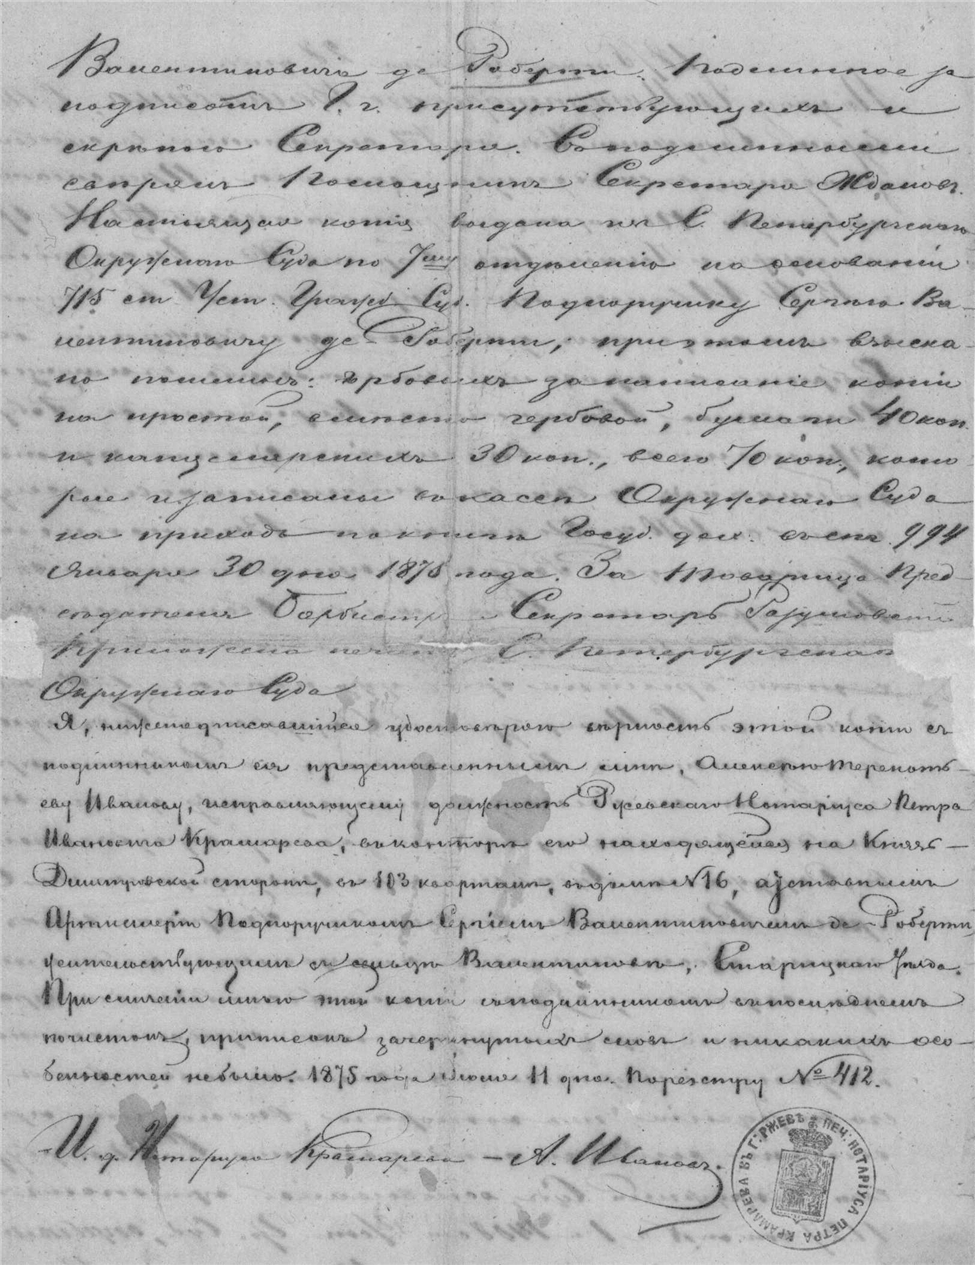 Валентиновича де Роберти. Подлинное за
подписомъ Г. г. присутствующихъ и
скрѣпою Секретаря. Съ подлиннымъ
свѣрялъ Помощникъ Секретаря Ждановъ.
Настоящая копія выдана изъ С. Петербургскаго
Окружнаго Суда по 7му отдѣленію на основаніи
715 ст Уст. Гражд. Суд. Подпоручику Сергѣю Ва-
лентиновичу де-Роберти, при этомъ взыска-
но пошлинъ: гербовыхъ за написаніе копіи
на простой, вмѣсто гербовой, бумаги 40 коп.
и канцелярскихъ 30 коп., всего 70 коп., кото
рые и записаны въ кассѣ Окружнаго Суда
на приходъ по книгѣ Госуд. дох. въ ст. 994
Января 30 дня 1875 года. За Товарища Пред-
сѣдателя Секретарь Разумовскій
Приложена печать С. Петербургскаго
Окружнаго Суда
Я, нижеподписавшійся удостовѣряю вѣрность этой копіи съ
подлинникомъ ея представленнымъ мнѣ, Алексѣю Терентъ-
еву Иванову, исправляющему должность Ржевскаго Нотаріуса Петра
Ивановича Крамарева, въ конторѣ его находящейся на Князь-
Дмитровской сторонѣ, въ 103 кварталѣ, въ домѣ № 16, отставнымъ
Артиллеріи Подпоручикомъ Сергѣемъ Валентиновичемъ де-Роберти,
жительствующимъ въ сельцѣ Валентиновкѣ, Старицкаго Уѣзда.
При сличеніи мною этой копіи съ подлинникомъ въ послѣднемъ
почистокъ, приписокъ зачеркнутыхъ словъ и никакихъ осо-
бенностей не было. 1875 года Іюля 11 дня. По реэстру № 412.
И. д. Нотаріуса Крамарева – А. Ивановъ.
ПЕЧ: НОТАРІУСА ПЕТРА КРАМАРЕВА ВЪ Г: РЖЕВѢ